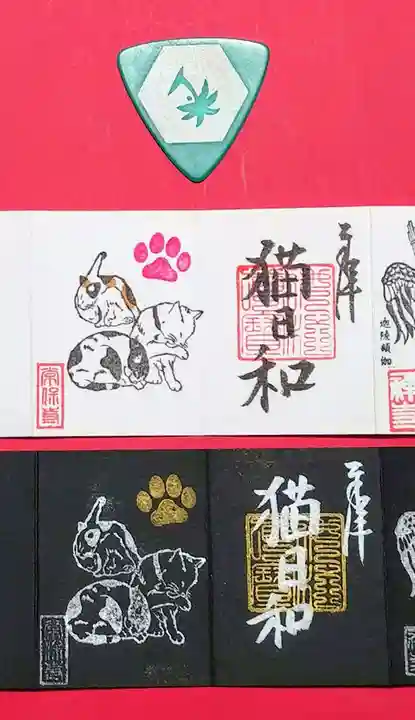 迦陵頻伽
奉拝
猫日和
常保寺
奉拝
猫日和
常保寺